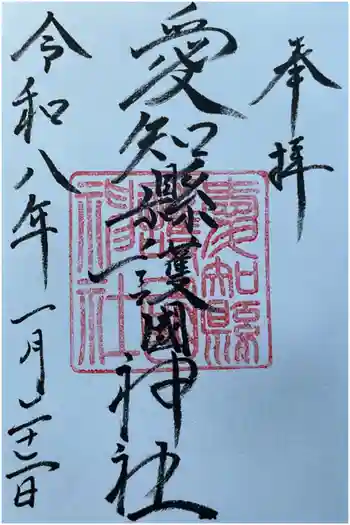 奉拝
愛知縣護國神社
愛知縣護國神社
令和八年一月二十二日